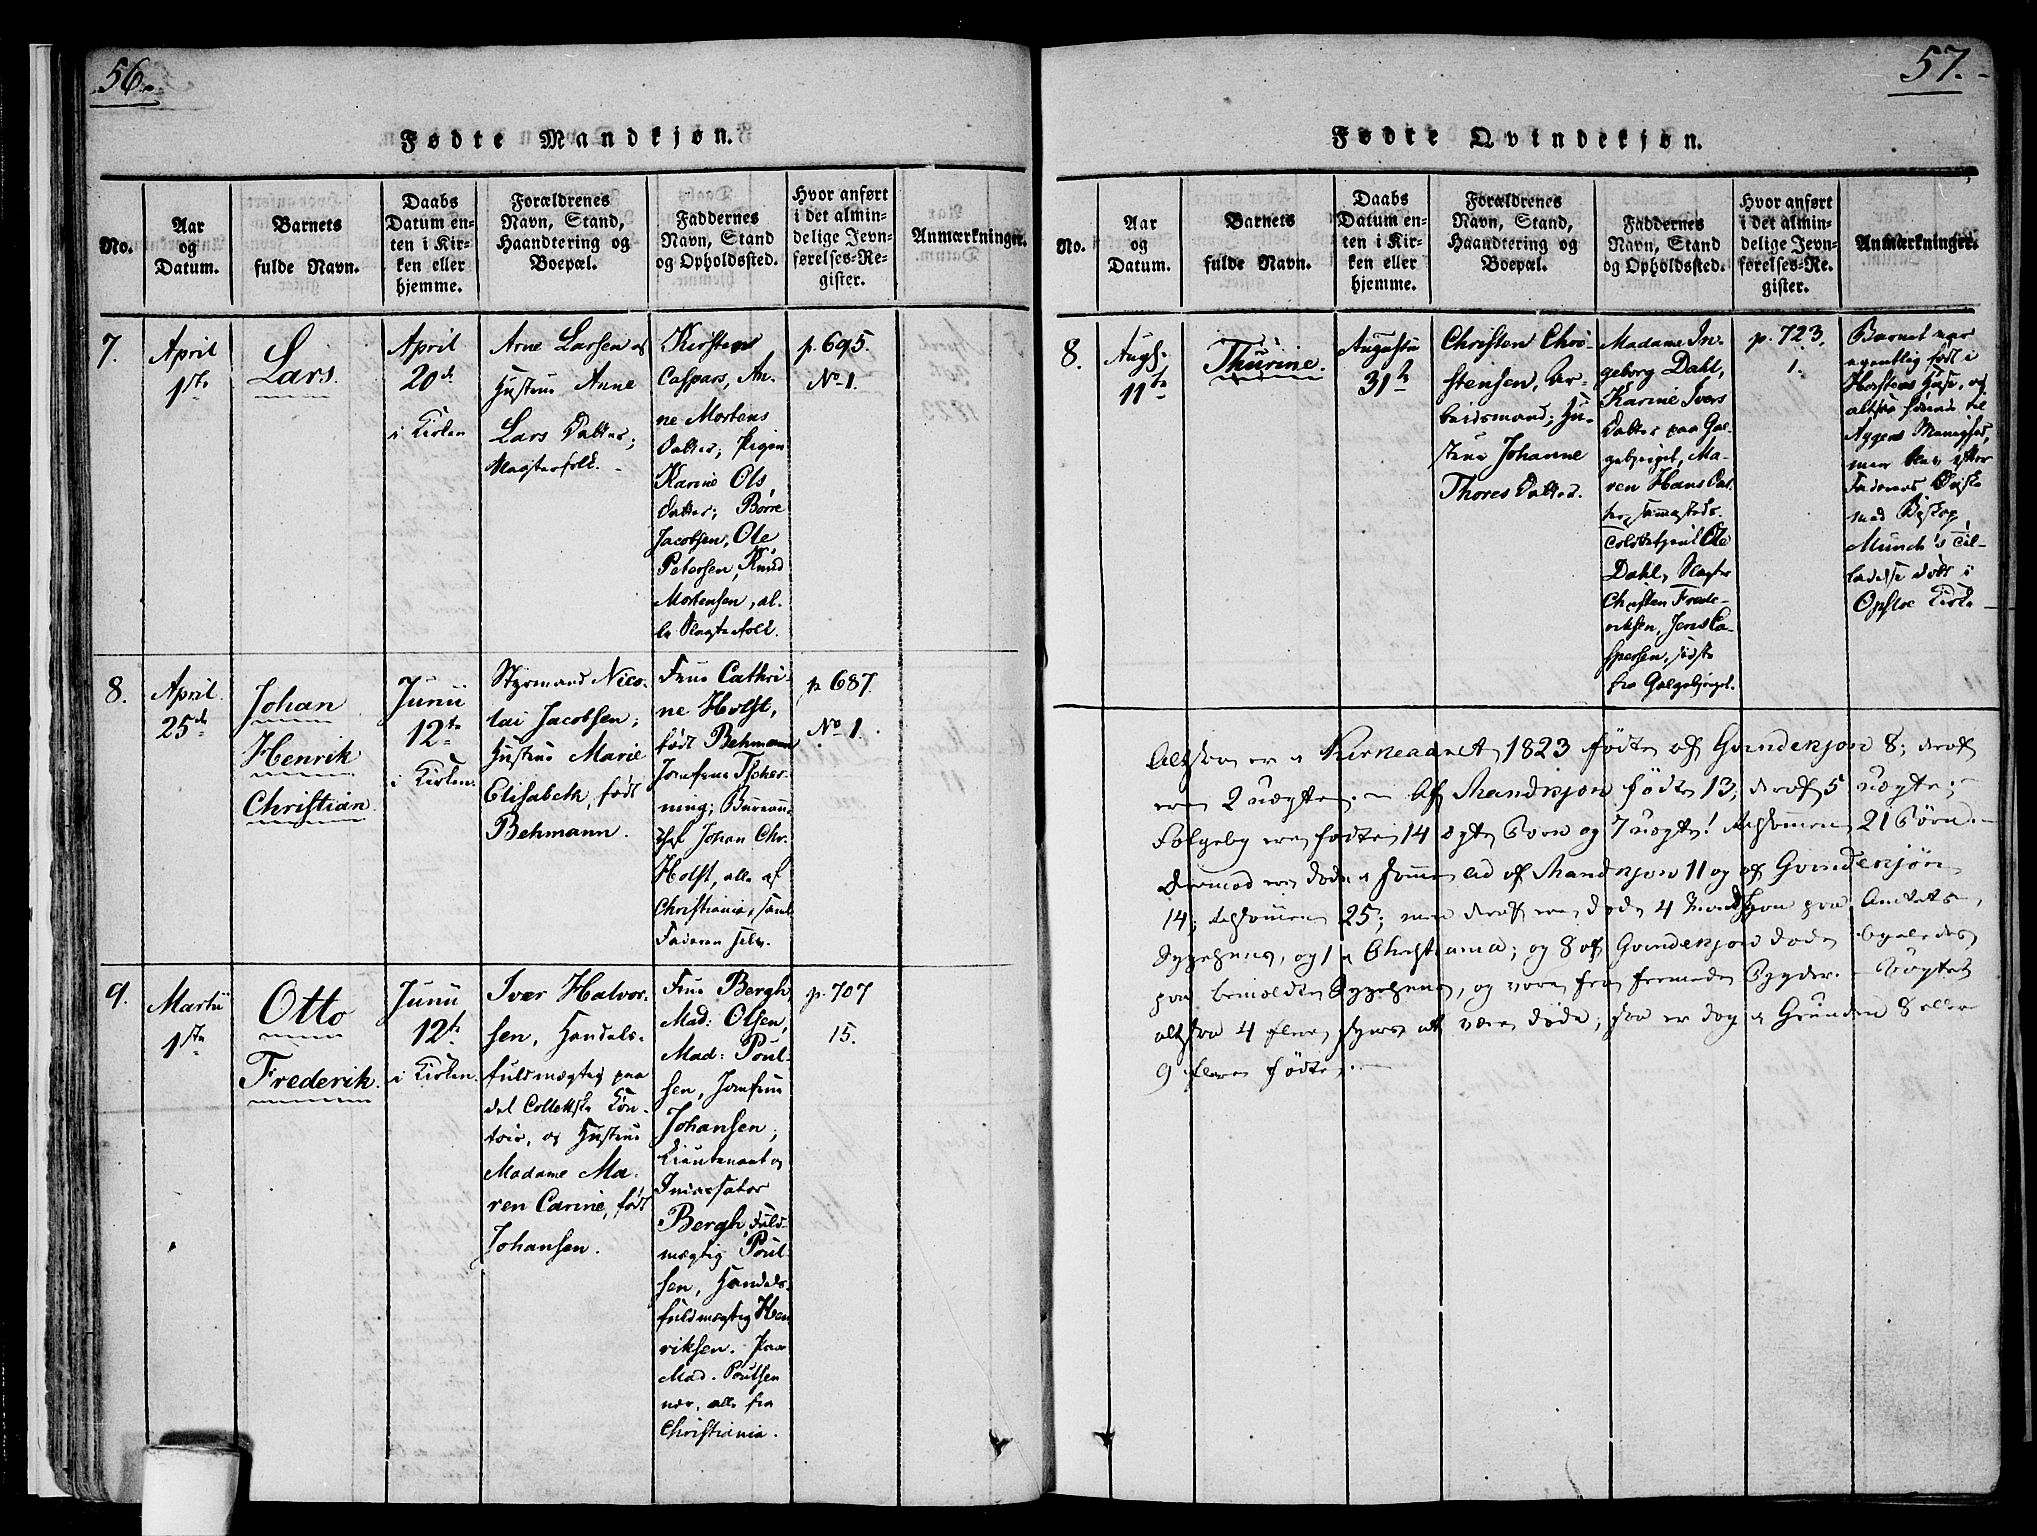 56.
Fødte Mandkjøn.
No.
Aar
og
Datum.
Barnets
fulde Navn.
Daabs
Datum en-
ten i Kir-
ken eller
hjemme.
Forældrenes
Navn, Stand,
Haandtering og
Boepæl.
Faddernes
Navn, Stand
og Opholdssted.
Hvor anført
i det almin-
delige Jevn-
førelses-Re-
gister.
Anmærkninger.
7.
April
1ste
Lars.
April
20de
i Kirken
Arne Larsen og
Hustrue Anne
Lars Datter;
Slagterfolk.
Kirsten
Caspars, An-
ne Mortens
Datter, Pigen
Karine Ols
Datter; Børre
Jacobsen, Ole
Petersen, Knud
Mortensen, al-
le Slagterfolk.
p. 695.
No 1.
8.
April
25de
Johan
Henrik
Christian
Junii
12te
i Kirken.
Styrmand Nico-
lai Jacobsen;
Hustrue Marie
Elisabeth, født
Behmann.
Frue Cathri-
ne Holst,
født Behmann
Jomfrue Tscher-
ning; Bureau-
chef Johan Chr.
Holst, alle af
Christiania, samt
Faderen selv.
p. 687.
No 1
9.
Martii
1ste
Otto
Frederik.
Junii
12te
i Kirken.
Iver Halvor-
sen, Handels-
fuldmægtig paa
det Collettske Con-
toir, og Hustrue
Madame Ma-
ren Carine, født
Johansen.
Frue Bergh,
Mad: Olsen,
Mad: Poul-
sen, Jomfrue
Johansen;
Lieutenant og
Bergh, Fuld-
mægtig Poul-
sen, Handels-
fuldmægtig Hen-
riksen.
Mad. Poulsen
nær, alle fra
Christiania.
p. 707
15.
57.
Fødte Qvindekjøn.
No.
Aar
og
Datum.
Barnets
fulde Navn.
Daabs
Datum en-
ten i Kir-
ken eller
hjemme.
Forældrenes
Navn, Stand,
Haandtering og
Boepæl.
Faddernes
Navn, Stand
og Opholdssted.
Hvor anført
i det almin-
delige Jevn-
førelses-Re-
gister.
Anmærkninger.
8.
Augs.
11te
Thurine.
Augustii
31te
Christen Chri-
stensen, Ar-
beidsmand; Hu-
strue Johanne
Thores Datter.
Madame In-
geborg Dahl,
Karine Ivers
Datter paa Gal-
gebjerget, Ma-
ren Hans Dat-
ter, sammesteds.
Ole
Dahl, Slagter
Christen Frede-
riksen, Jens Ca-
spersen, sidste
fra Galgebjerget.
p. 723.
1.
Barnet var
egentlig født i
Huse, og
altsaa til
Aggers Menighed,
men blev efter
Faderens Ønske
med Biskop
Munch's Til-
ladelse døbt i
Opsloe Kirke
Altsaa er i Kirkeaaret 1823 fødte af Qvindekjøn 8; deraf
ere 2 uægte. — Af Mandkjøn fødte 13; deraf 5 uægte; —
Følgelig ere fødte 14 ægte Børn og 7 uægte! tilsammen 21 Børn. —
Derimod ere døde i samme af Mandkjøn 11 og af Qvindekjøn
14; tilsammen 25; men deraf ere døde 4 Mandkjøn paa Amtets
Sygehuus, og 1 i Christiania; og 8 af Qvindekjøn døde
paa bemeldte Sygehuus, og vare fra fremmede Bygder. —
altsaa 4 flere synes at være døde; saa er dog i Grunden 8 eller
9 flere fødte. —